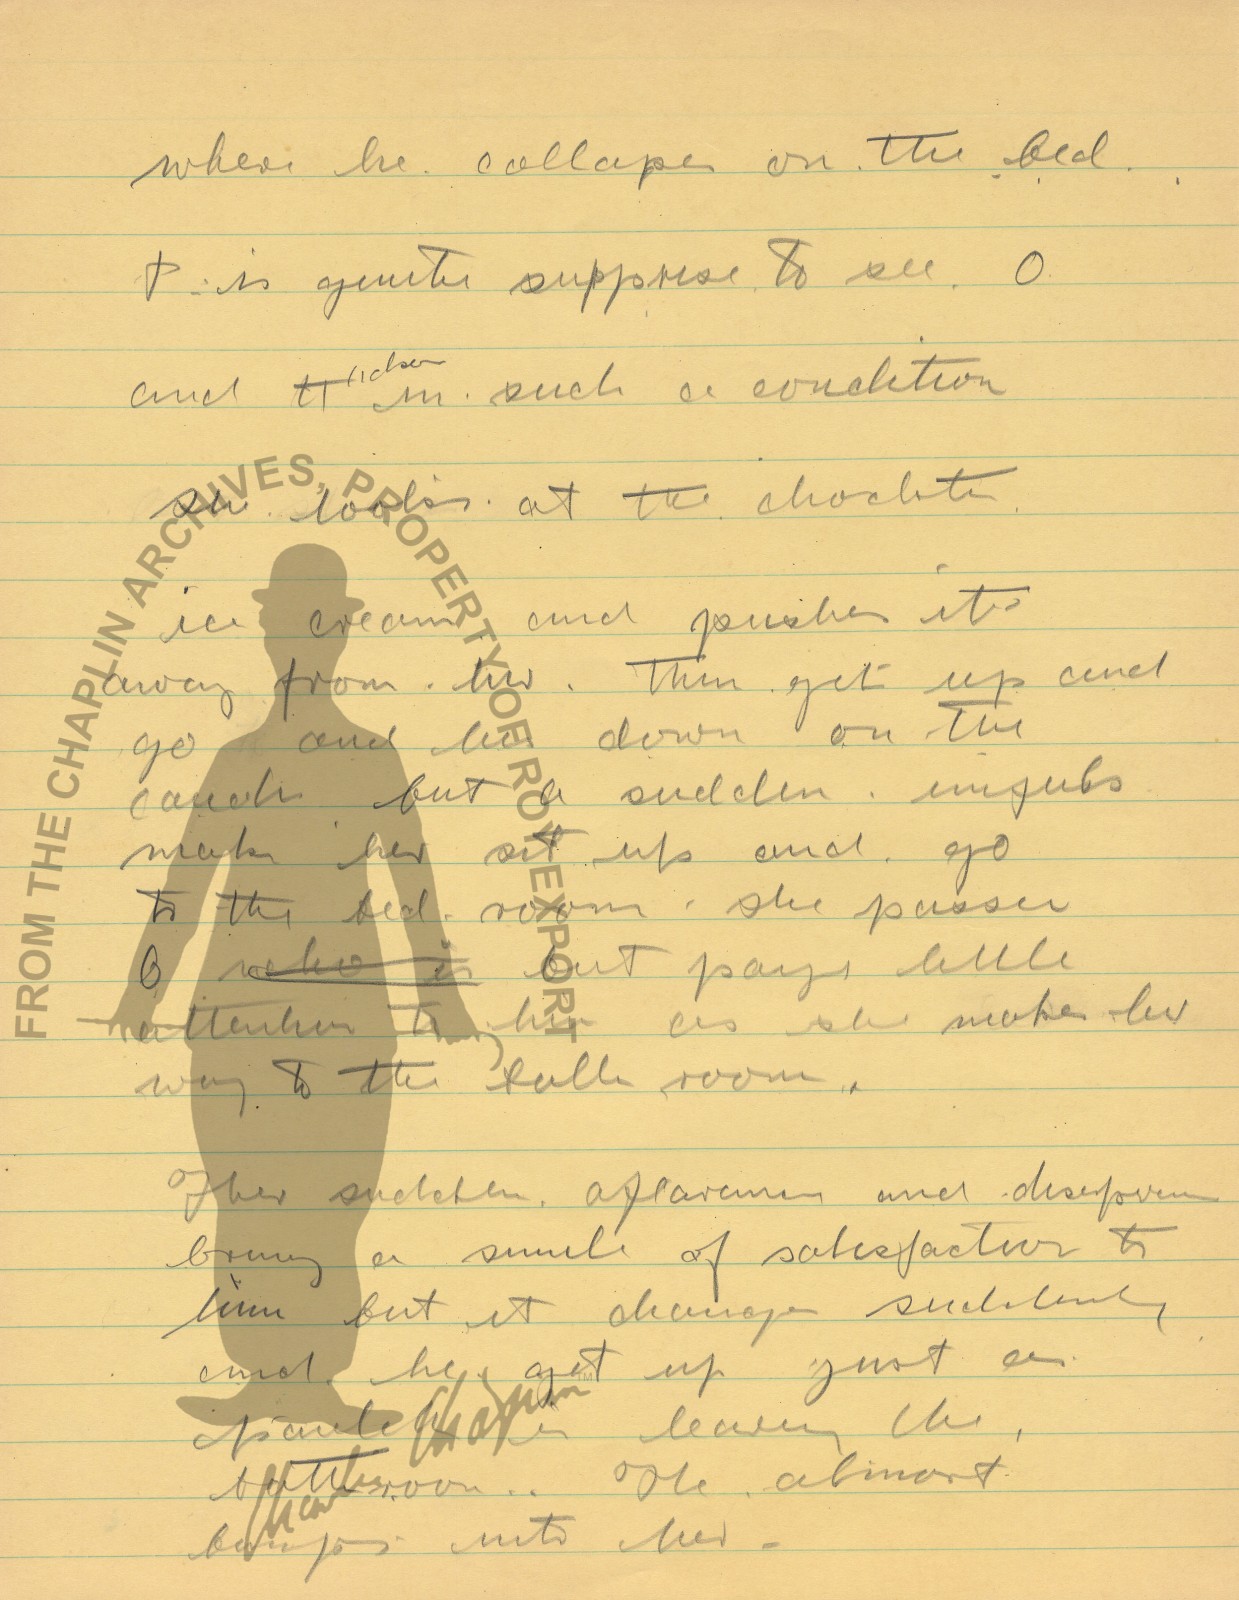 where he collapes on the bed.
P is quite supprise to see O
and H in such a condition
she looks at the choclate
ice cream and pushes it
away from her. Then get up and
go and lie down on the
couch but a sudden
make her sit up and go
to the bed room. she passes
O who is but pays little
attention to him as she makes her
way to the bath room..
Her sudden and
bring a smile of satisfaction to
him but it changes suddenly
and he get up just as
is leaving the
bathroom.. He almost
bumps into her -
FROM THE CHAPLIN ARCHIVES, PROPERTY OF ROY EXPORT
Charles Chaplin
TM